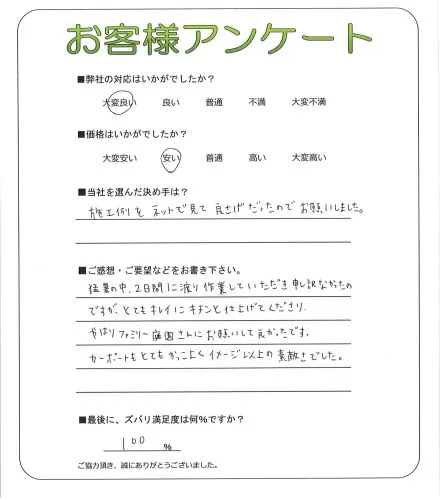 お客様アンケート
■弊社の対応はいかがでしたか?
大変良い 良い 普通 不満 大変不満
■価格はいかがでしたか?
大変安い 安い 普通 高い 大変高い
■当社を選んだ決め手は?
施工例を ネットで見て 良さげだったので お願いしました。
■ご感想・ご要望などをお書き下さい。
猛暑の中、2日間に渡り作業していただき申し訳なかったの
ですが、とてもキレイにキチンと仕上げてくださり、
やはりファミリー庭園さんにお願いして良かったです。
カーポートもとてもかっこよくイメージ以上の素敵さでした。
■最後に、ズバリ満足度は何%ですか?
100 %
ご協力頂き、誠にありがとうございました。